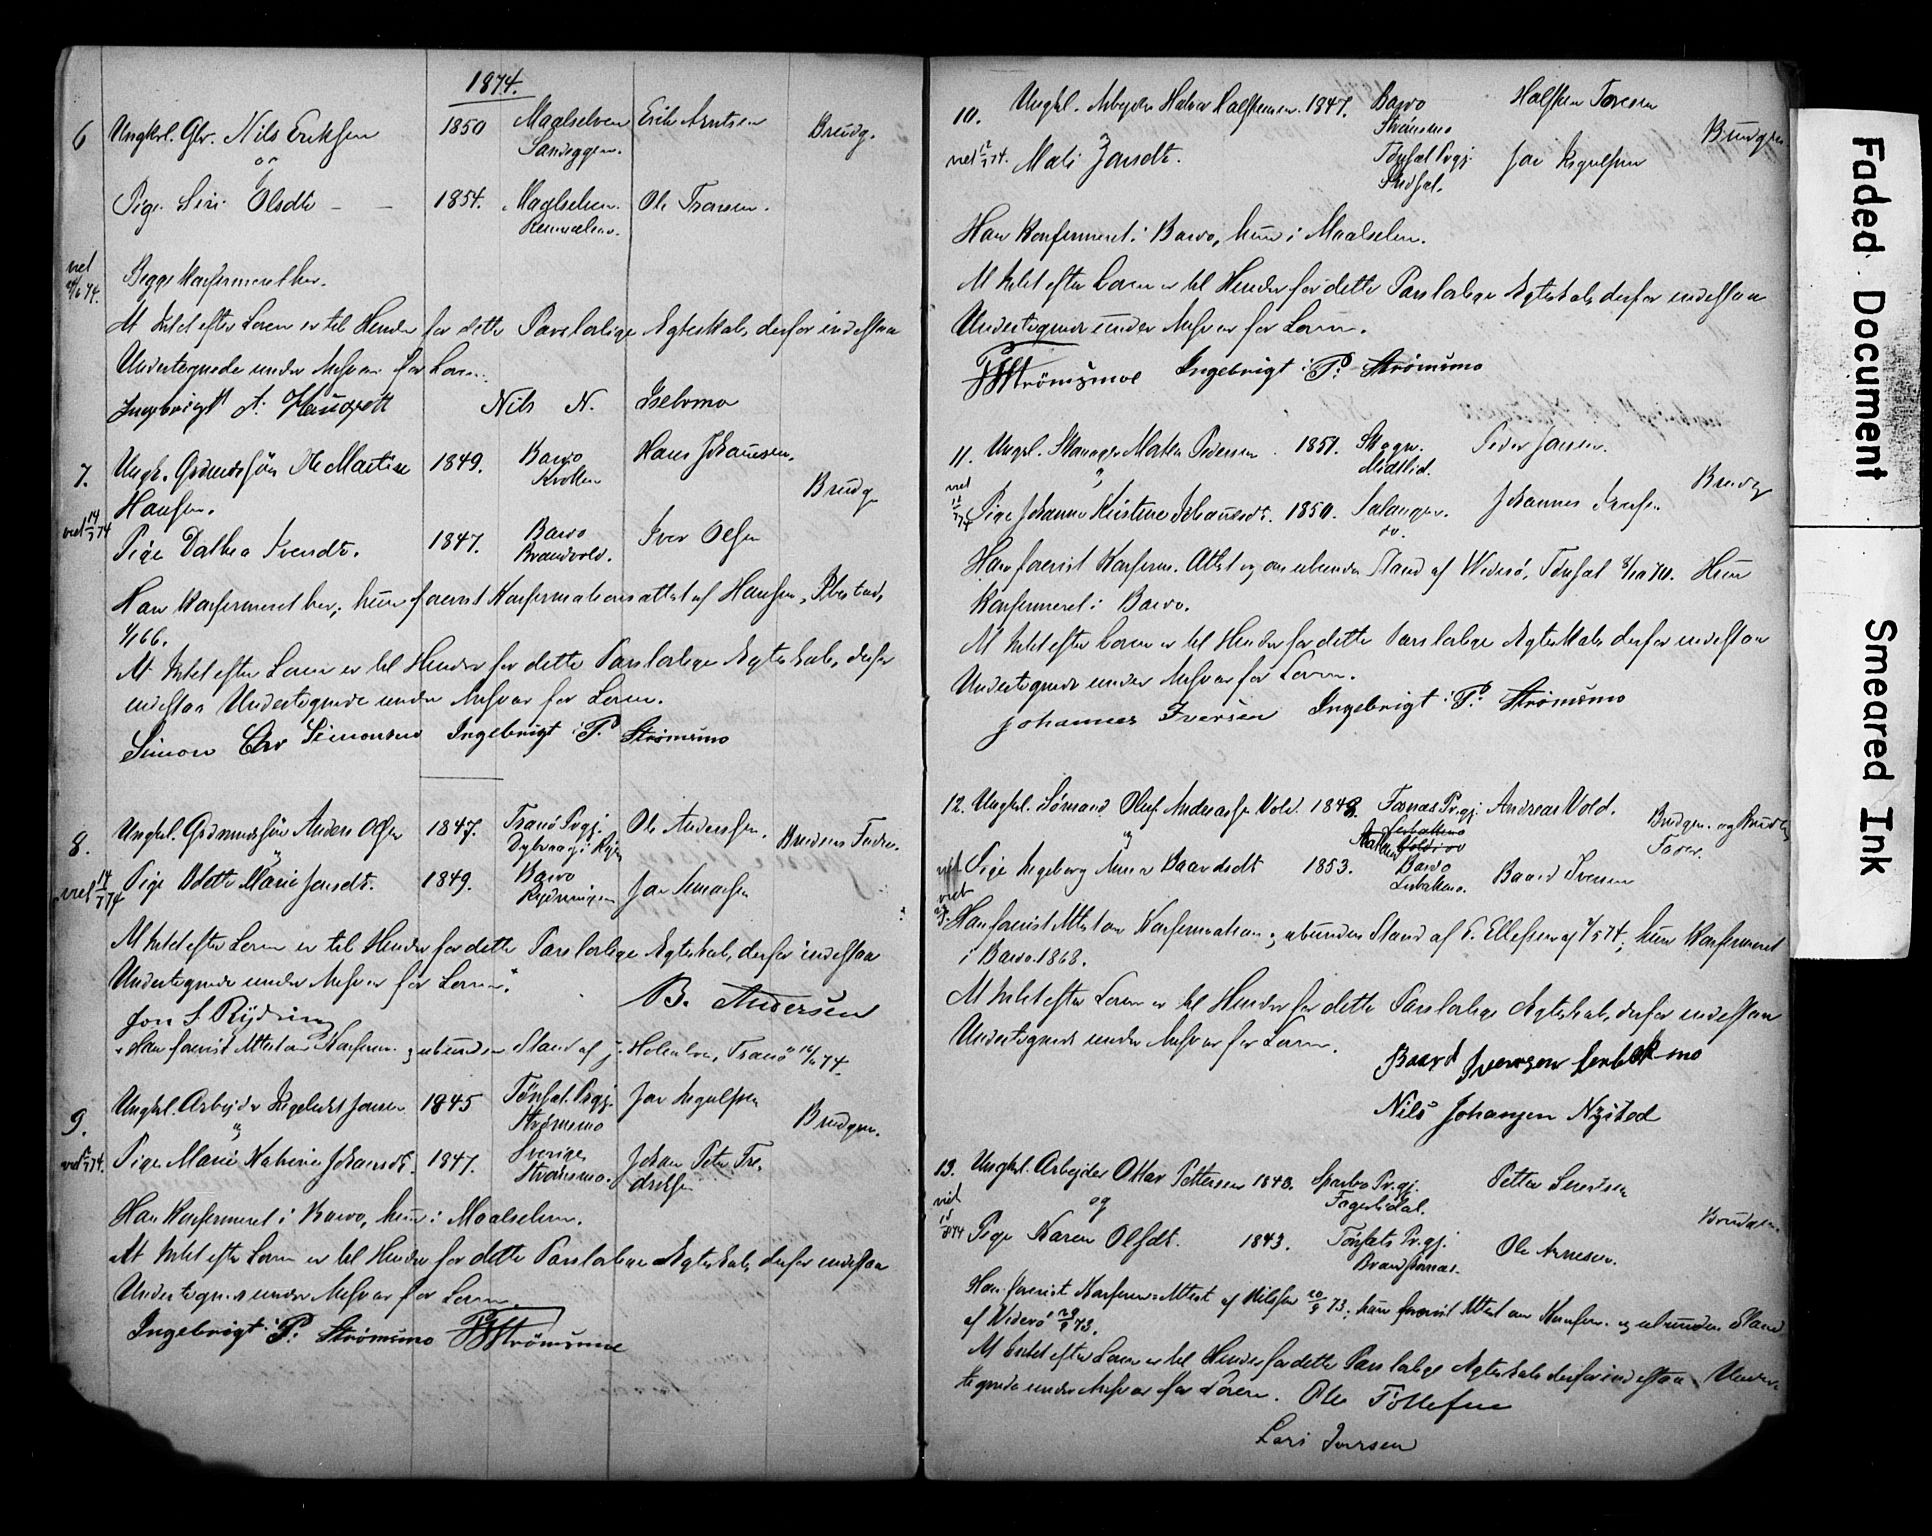 1874.
6 Ungkrl. Gbr. Nils Eriksen 1850 Maalselven Erik Arntsen Brudg.
og Sandeggen.
Pige Siri Olsdtr 1854. Maalselven Ole Tronsen.
viet
74. Begge Konfirmeret her.
At Intet efter Loven er til Hinder for dette Paaslovlige Ægteskab, derfor indestaa
Undertegnede under Ansvar for Loven.
Ingebrigt A. Nils N. Iselvmo
7. Ungk. Gbrmandssøn Ole Martin 1849. Bardo Hans Johannesen.
Hansen. Krokken Brudg.
viet 14/7 74
Pige Dalhea Iversdtr. 1847. Bardo Iver Olsen
Brandvold.
Han Konfirmeret her; hun forevist Konfirmationsattest af Hansen, Ibestad,
66.
At Intet efter Loven er til Hinder for dette Paaslovlige Ægteskab, derfor
indestaa Undertegnede under Ansvar for Loven.
Simon Chr Simonsen Ingebrigt P. Strømsmo
8. Ungkl. Gbrmandssøn Anders Olsen 1847. Tranø Prgj. Ole Anderssen. Brudens Fader.
viet 14/7 74 Pige Odette Marie Jonsdt. 1849. Bardo Jon
Rydningen
At Intet efter Loven er til Hinder for dette Paaslovlige Ægteskab, derfor indestaa
Undertegnede under Ansvar for Loven.
Jon S. Rydning B. Andersen
Han forevist Attest om Konfirm. og ubunden Stand af Tranø 74.
9. Ungkl. Arbejder Ingebrigt Jonsen 1845 Tønset Prgj. Jon Ingulfsen
" Strømsmo Brudgm.
viet 74. Pige Marie Katrine Johansdt. 1847. Sverige Johan Peter Fre-
Strømsmo. driksen
Han Konfirmeret i Bardo, hun i Maalselven.
At Intet efter Loven er til Hinder for dette Paaslovlige Ægteskab, derfor indestaa
Undertegnede under Ansvar for Loven.
Ingebrigt P. Strømsmo Strömsmoe
10. Ungkl. Arbejder Halvor Halfstensen 1847. Bardo Halfsten Toresen
Strømsmo Brudgm
viet 74. Mali Jonsdt. Tønset Prgj. Jon Ingulfsen
Han Konfirmeret i Bardo, hun i Maalselven.
At Intet efter Loven er til Hinder for dette Paaslovlige Ægteskab, derfor indestaa
Undertegnede under Ansvar for Loven.
Strömsmoe Ingebrigt P. Strømsmo
11. Ungkl. Pedersen 1851. Peder Jonsen.
" Brudg
viet
Pige Johanne Kristine Johannesdt. 1850. Salangen. Johannes Iversen
do.
Han forevist Konfirm. Attest og om ubunden Stand af Widerø, Tønset 8/10 70. Hun
Konfirmeret i Bardo.
At Intet efter Loven er til Hinder for dette Paaslovlige Ægteskab, derfor indestaa
Undertegnede under Ansvar for Loven.
Johannes Iversen Ingebrigt P. Strømsmo
12. Ungkl. Sømand Oluf Andreassen Vold. 1848. Fosnæs Prgj. Andreas Vold. Brudgm. og Brudens
Fader.
viet Pige Ingeborg Anna Baardsdt 1853. Bardo Baard Iversen
viet
Han forevist Attest om Konfirmation og ubunden Stand af P. Ellefsen af 74; hun Konfirmeret
i Bardo 1868.
At Intet efter Loven er til Hinder for dette Paaslovlige Ægteskab, derfor indestaa
Undertegnede under Ansvar for Loven.
Baard Iverrsen
Nils Johansen Nystad
13. Ungkl. Arbejder Ottar Pettersen 1848. Sparbo Prgj. Petter
viet og Brudgm.
74 Pige Karen Olsdt. 1843. Tønsets Prgj. Ole Arnesen.
Han forevist Konfirm. Attest af Nilssen 20/9 73; hun forevist Attest om Konfirm. og ubunden Stand
af Widerö 29/9 73.
At Intet efter Loven er til Hinder for dette Paaslovlige Ægteskab, derfor indestaa Under-
tegnede under Ansvar for Loven. Ole Tollefsen
Lars Iversen
Faded Document
Smeared Ink